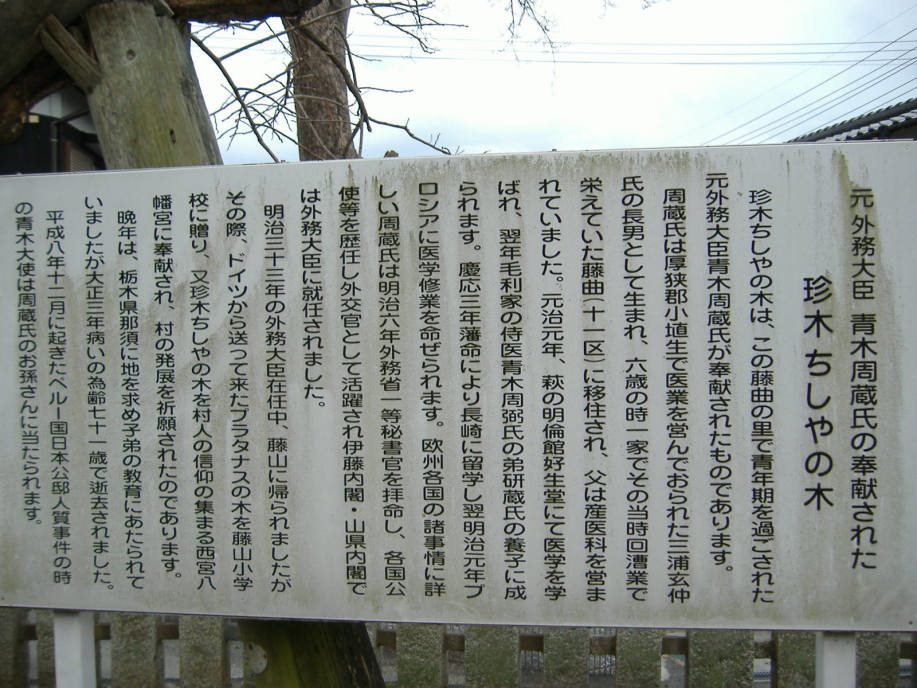 元外務大臣 青木周蔵氏の奉献された
珍木ちしやの木
珍木ちしやの木は、この藤曲の里で青年期を過ごされた
元外務大臣青木周蔵氏が奉献されたものであります。
周蔵氏は厚狭郡小埴生で医業を営んでおられた三浦玄仲
氏の長男として生まれ、六歳の時一家でその当時回漕業で
栄えていた藤曲(十一区)に移住され、父は産医科を営ま
れていました。元治元年、萩の明倫館好生堂にて医学を学
ばれ、翌年毛利家の侍医青木周弼氏の弟研蔵氏の養子に成
られます。慶応三年藩命により長崎に留学し翌明治元年プ
ロシアに医学修業を命ぜられます。欧州各国の諸事情に詳
しい周蔵氏は明治六年外務省一等秘書官を拝命し、各国公
使等を歴任し外交官として活躍され伊藤内閣・山県内閣で
は外務大臣に就任されました。
明治三十三年の外務大臣在任中、藤山に帰られましたが
その際、ドイツから送って来たプラタナスの木を藤山小学
校に贈り、又珍木ちしやの木を村人の信仰の集まる西宮八
幡宮に奉献され、村の発展を祈願されたのであります。
晩年は、栃木県那須に地を求め子弟の教育にあたられて
いましたが大正三年病いの為齢七十一歳で逝去されました。
平成八年十二月に起きたペルー国日本公邸人質事件の時
の青木大使は周蔵氏のお孫さんに当たられます。